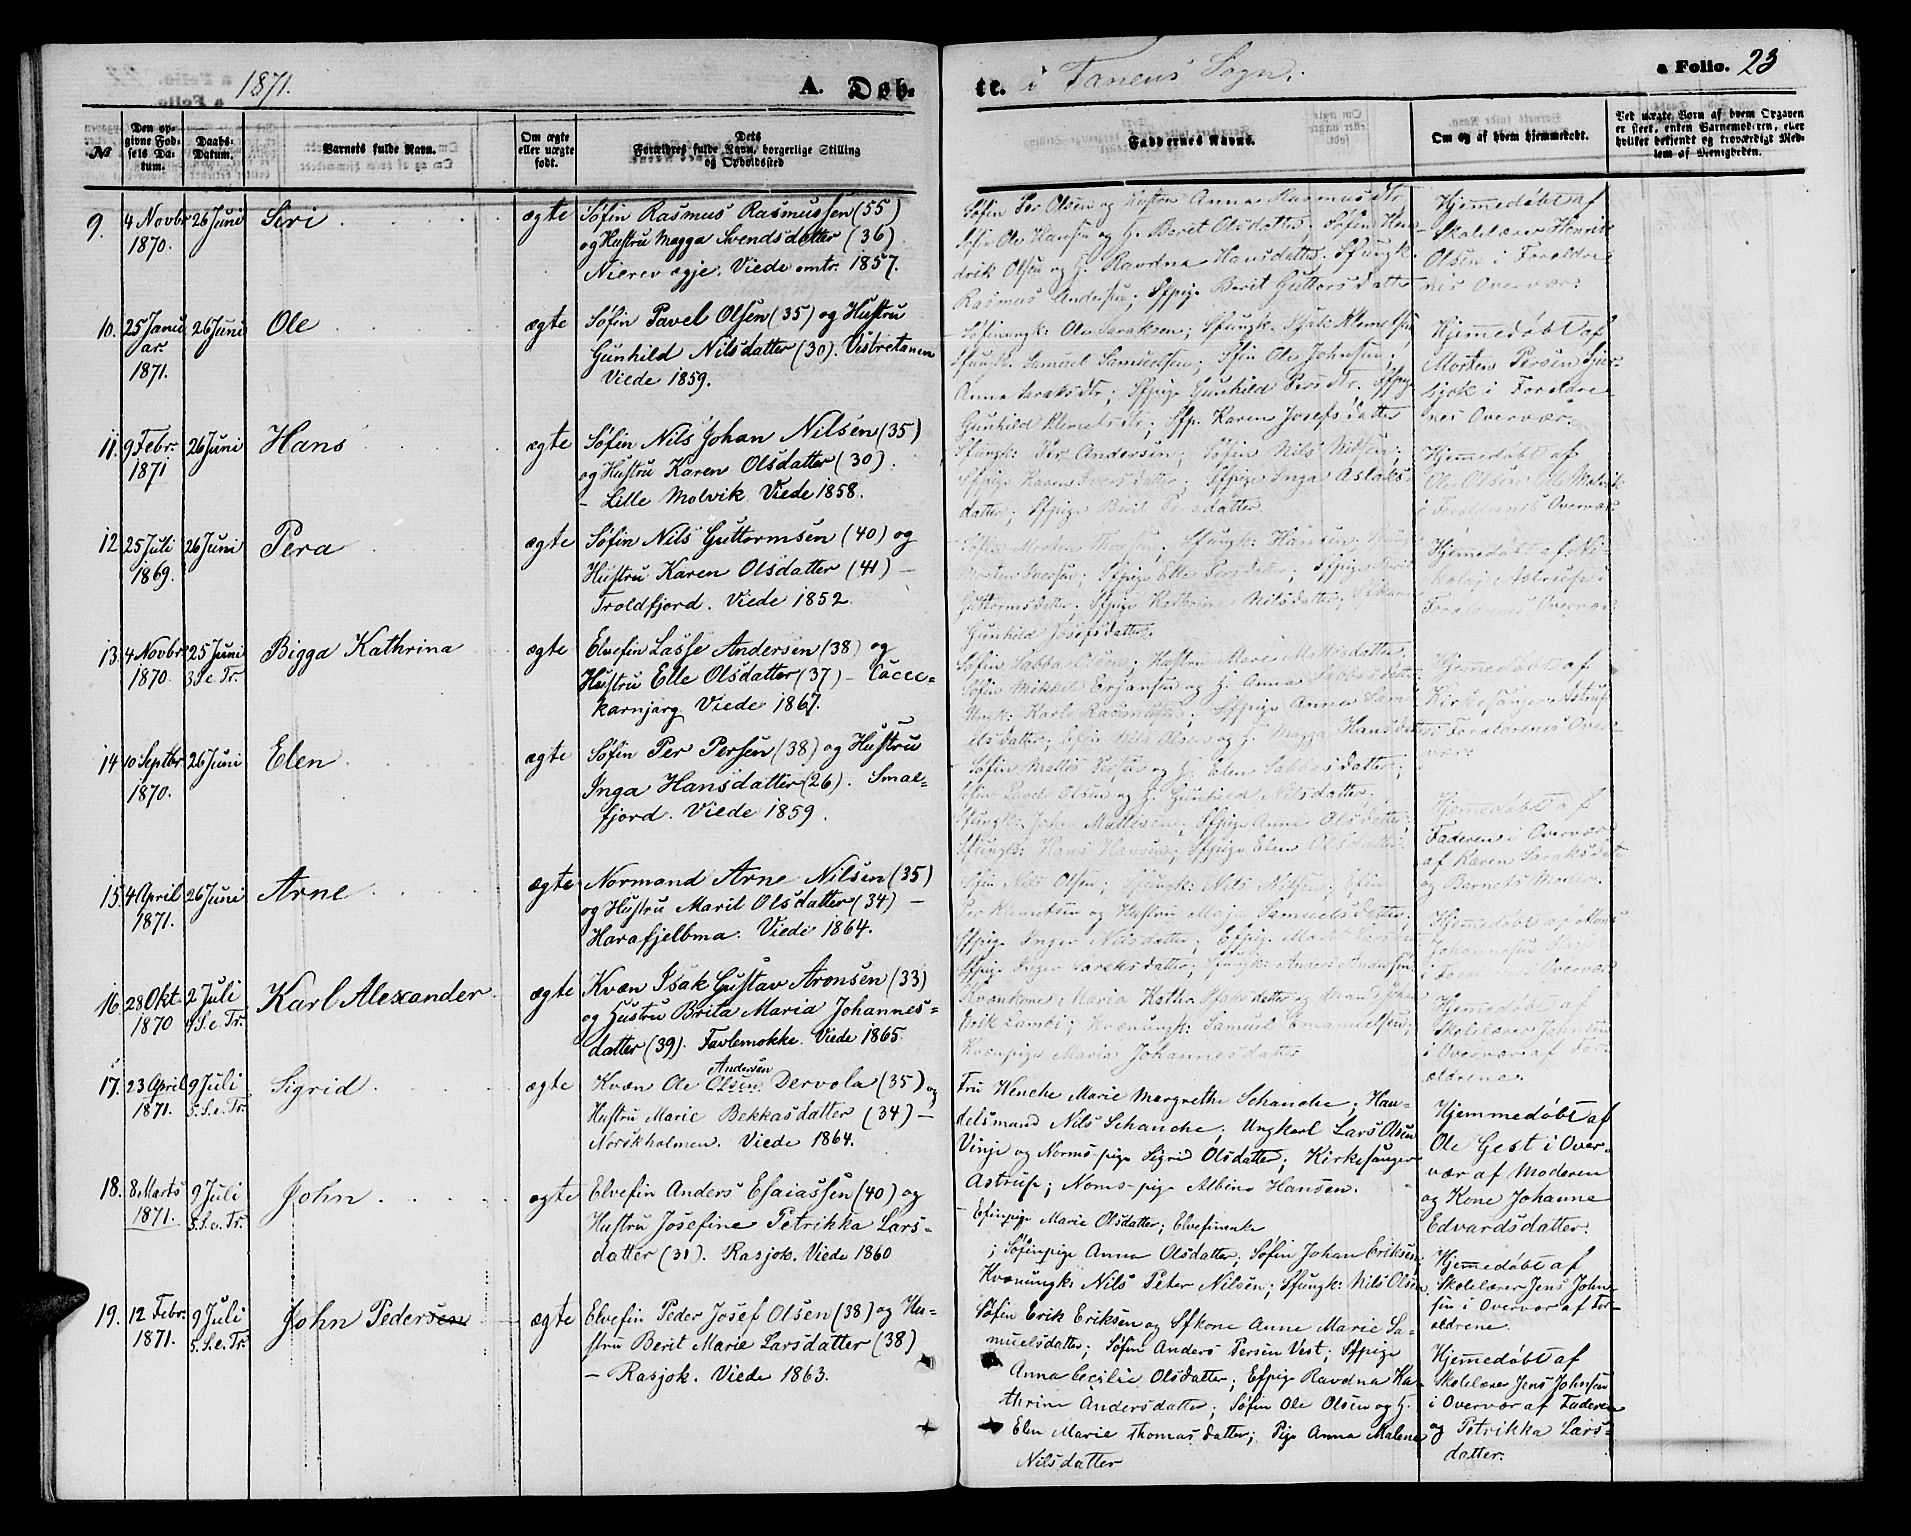 1871.
A. Døb-
te. i Tanens Sogn.
a Folio. 23
No
Den op-
givne Fød-
sels Da-
tum.
Daabs-
Datum.
Barnets fulde Navn.
Om ægte
eller uægte
født.
Dets
Forældres fulde Navn, borgerlige Stilling
og Opholdssted
Faddernes Navne.
Om og af hvem hjemmedøbt.
Ved uægte Børn af hvem Opgaven
er skeet, enten Barnemoderen, eller
hvilket bekjendt og troværdigt Med-
lem af Menigheden.
9. 4 Novbr 26 Juni Siri ægte Søfin Rasmus Rasmussen (55)
1870. og Hustru Magga Svendsdatter (36)
Nierevægje. Viede omtr. 1857.
Søfin Per Olsen og Hustru Anna Rasmusdtr,
Søfin Ole Hansen og H. Berit Olsdatter; Søfin Hen-
drik Olsen og H. Ravdna Hansdatter; Sfungk.
Rasmus Andersen; Sfpige Berit Guttorsdatter
Hjemmedøbt af
Skolelærer Henrik
Olsen i Forældre-
nes Overvær.
10. 25 Janu- 26 Juni Ole ægte Søfin Pavel Olsen (35) og Hustru
ar. Gunhild Nilsdatter (30). Vestretanen
1871. Viede 1859.
Søfinungk: Ole Saraksen; Sfungk. Klemetsen
Sfungk. Samuel Samuelsen; Sfin Ole Johnsen;
Anna Saraksdtr; Sfpige Gunhild Persdtr. Sfpige
Gunhild Klemetsdtr; Sfp. Karen Josefsdatter
Hjemmedøbt af
Morten Persen
i Forældre-
nes Overvær.
11. 9 Febr. 26 Juni Hans ægte Søfin Nils Johan Nilsen (35)
1871 og Hustru Karen Olsdatter (30).
- Lille Molvik Viede 1858.
Sfungk: Per Andersen; Søfin Nils Nilsen;
Sfpige Karen Iversdatter; Sfpige Inga Aslaks-
datter; Sfpige Berit Persdatter
Hjemmedøbt af
Ole Olsen Lille Molvik
i Forældrenes Overvær
12 25 Juli 26 Juni Pera ægte Søfin Nils Guttormsen (40) og
1869. Hustru Karen Olsdatter (41) -
Troldfjord. Viede 1852.
Søfin Morten ; Sfungk: Hansen
Morten Iversen; Sfpige Elle Persdatter; Sfpige Berit
Guttormsdatter; Sfpige Kathrine Nilsdatter;
Gunhild Josefsdatter.
Hjemmedøbt af Ni-
kolaj Astrup i
Forældrenes Overvær
13. 4 Novbr. 25 Juni Bigga Kathrina ægte Elvefin Lasse Andersen (38) og
1870. 3 S. e Tr. Hustru Elle Olsdatter (37) - Cacce-
karnjarg Viede 1867.
Søfin Sabba Olsen; Hustru Mari Mattisdatter,
Søfin Mikkel Ersansen og H. Anna Sabbasdatter
Ungk: Karl Rasmussen; Sfpige Anna Samu-
elsdatter; Søfin Nils Olsen og H. Magga Hansdatter
Hjemmedøbt af
Kirkesanger Astrup
i Forældrenes Over-
vær.
14 10 Septbr 26 Juni Elen ægte Søfin Per Persen (38) og Hustru
1870. Inga Hansdatter (26). Smal-
fjord. Viede 1859.
Søfin Mattis Persen og H. Elen Sabbasdatter;
Søfin Pavel Olsen og H. Gunhild Nilsdatter.
Sfungk: John Mattisen; Sfpige Anne Olsdatter;
Sfungk: Hans Hansen; Sfpige Elen Olsdatter
Hjemmedøbt af
Faderen i Overvær
af Karen Saraksdatter
og Barnets Moder.
15. 4 April 26 Juni Arne ægte Normand Arne Nilsen (35)
1871. og Hustru Marit Olsdatter (34) -
Harafjelbma. Viede 1864.
Søfin Nils Olsen; Sfungk: Nils Nilsen; Søfin
Per Klemetsen og Hustru Maja Samuelsdatter;
Sfpige Inger Nilsdatter; Sfpige Marit
Sfpige Inger Saraksdatter; Sfungk: Anders Andersen
Hjemmedøbt af
Johannesen
i Forældrenes Overvær
16. 28 Okt 2 Juli Karl Alexander ægte Kvæn Isak Gustav Aronsen (33)
1870 4 S. e Tr. og Hustru Brita Maria Johannes-
datter (39). Favlemokke. Viede 1865.
Kvænkone Maria Kathr. Isaksdatter og Mand Johan
Erik Lambi; Kvænungk: Samuel Emanuelsen;
Kvænpige Maria Johannesdatter
Hjemmedøbt af
Skolelærer Johnsen
i Overvær af For-
ældrene.
17. 23 April 9 Juli Sigrid ægte Kvæn Ole Andersen Olsen Dervola (35) og
1871. 5. S. e. Tr. Hustru Marie Bekkasdatter (34) -
Norskholmen. Viede 1864.
Fru Wenche Marie Margrethe Schanche; Han-
delsmand Nils Schanche; Ungkarl Lars Olsen
Vinje og Norms-pige Sigrid Olsdatter; Kirkesanger
Astrup; Noms-pig Albine Hansen.
Hjemmedøbt af
Ole Gest i Over-
vær af Moderen
og Kone Johanne
Edvardsdatter.
18. 8 Marts 9 Juli John ægte Elvefin Anders Esaiassen (40) og
1871. 5. S. e. Tr. Hustru Josefine Petrikka Lars-
datter (31). Rasjok. Viede 1860
- Efinpige Marie Olsdatter; Elvefinenke
; Søfinpige Anna Olsdatter; Søfin Johan Eriksen,
Kvænungk: Nils Peter Nilsen; Sfungk: Nils Olsen
Hjemmedøbt af
Skolelærer Jens John-
sen i Overvær af For-
ældrene.
19. 12 Febr. 9 Juli John Pedersen ægte Elvefin Peder Josef Olsen (38) og Hu-
1871. 5. S. e. Tr. stru Berit Marie Larsdatter (38)
- Rasjok. Viede 1863.
Søfin Erik Eriksen og Sfkone Anne Marie Sa-
muelsdatter; Søfin Anders Persen Vest; Sfpige
Anna Cecilie Olsdatter; Efpige Ravdna Ka-
thrine Andersdatter; Søfin Ole Olsen og H.
Elen Marie Thomasdatter; Pige Anna Malene
Nilsdatter
Hjemmedøbt af
Skolelærer Jens Johnsen
i Overvær af Faderen
og Petrikka Lars-
datter.